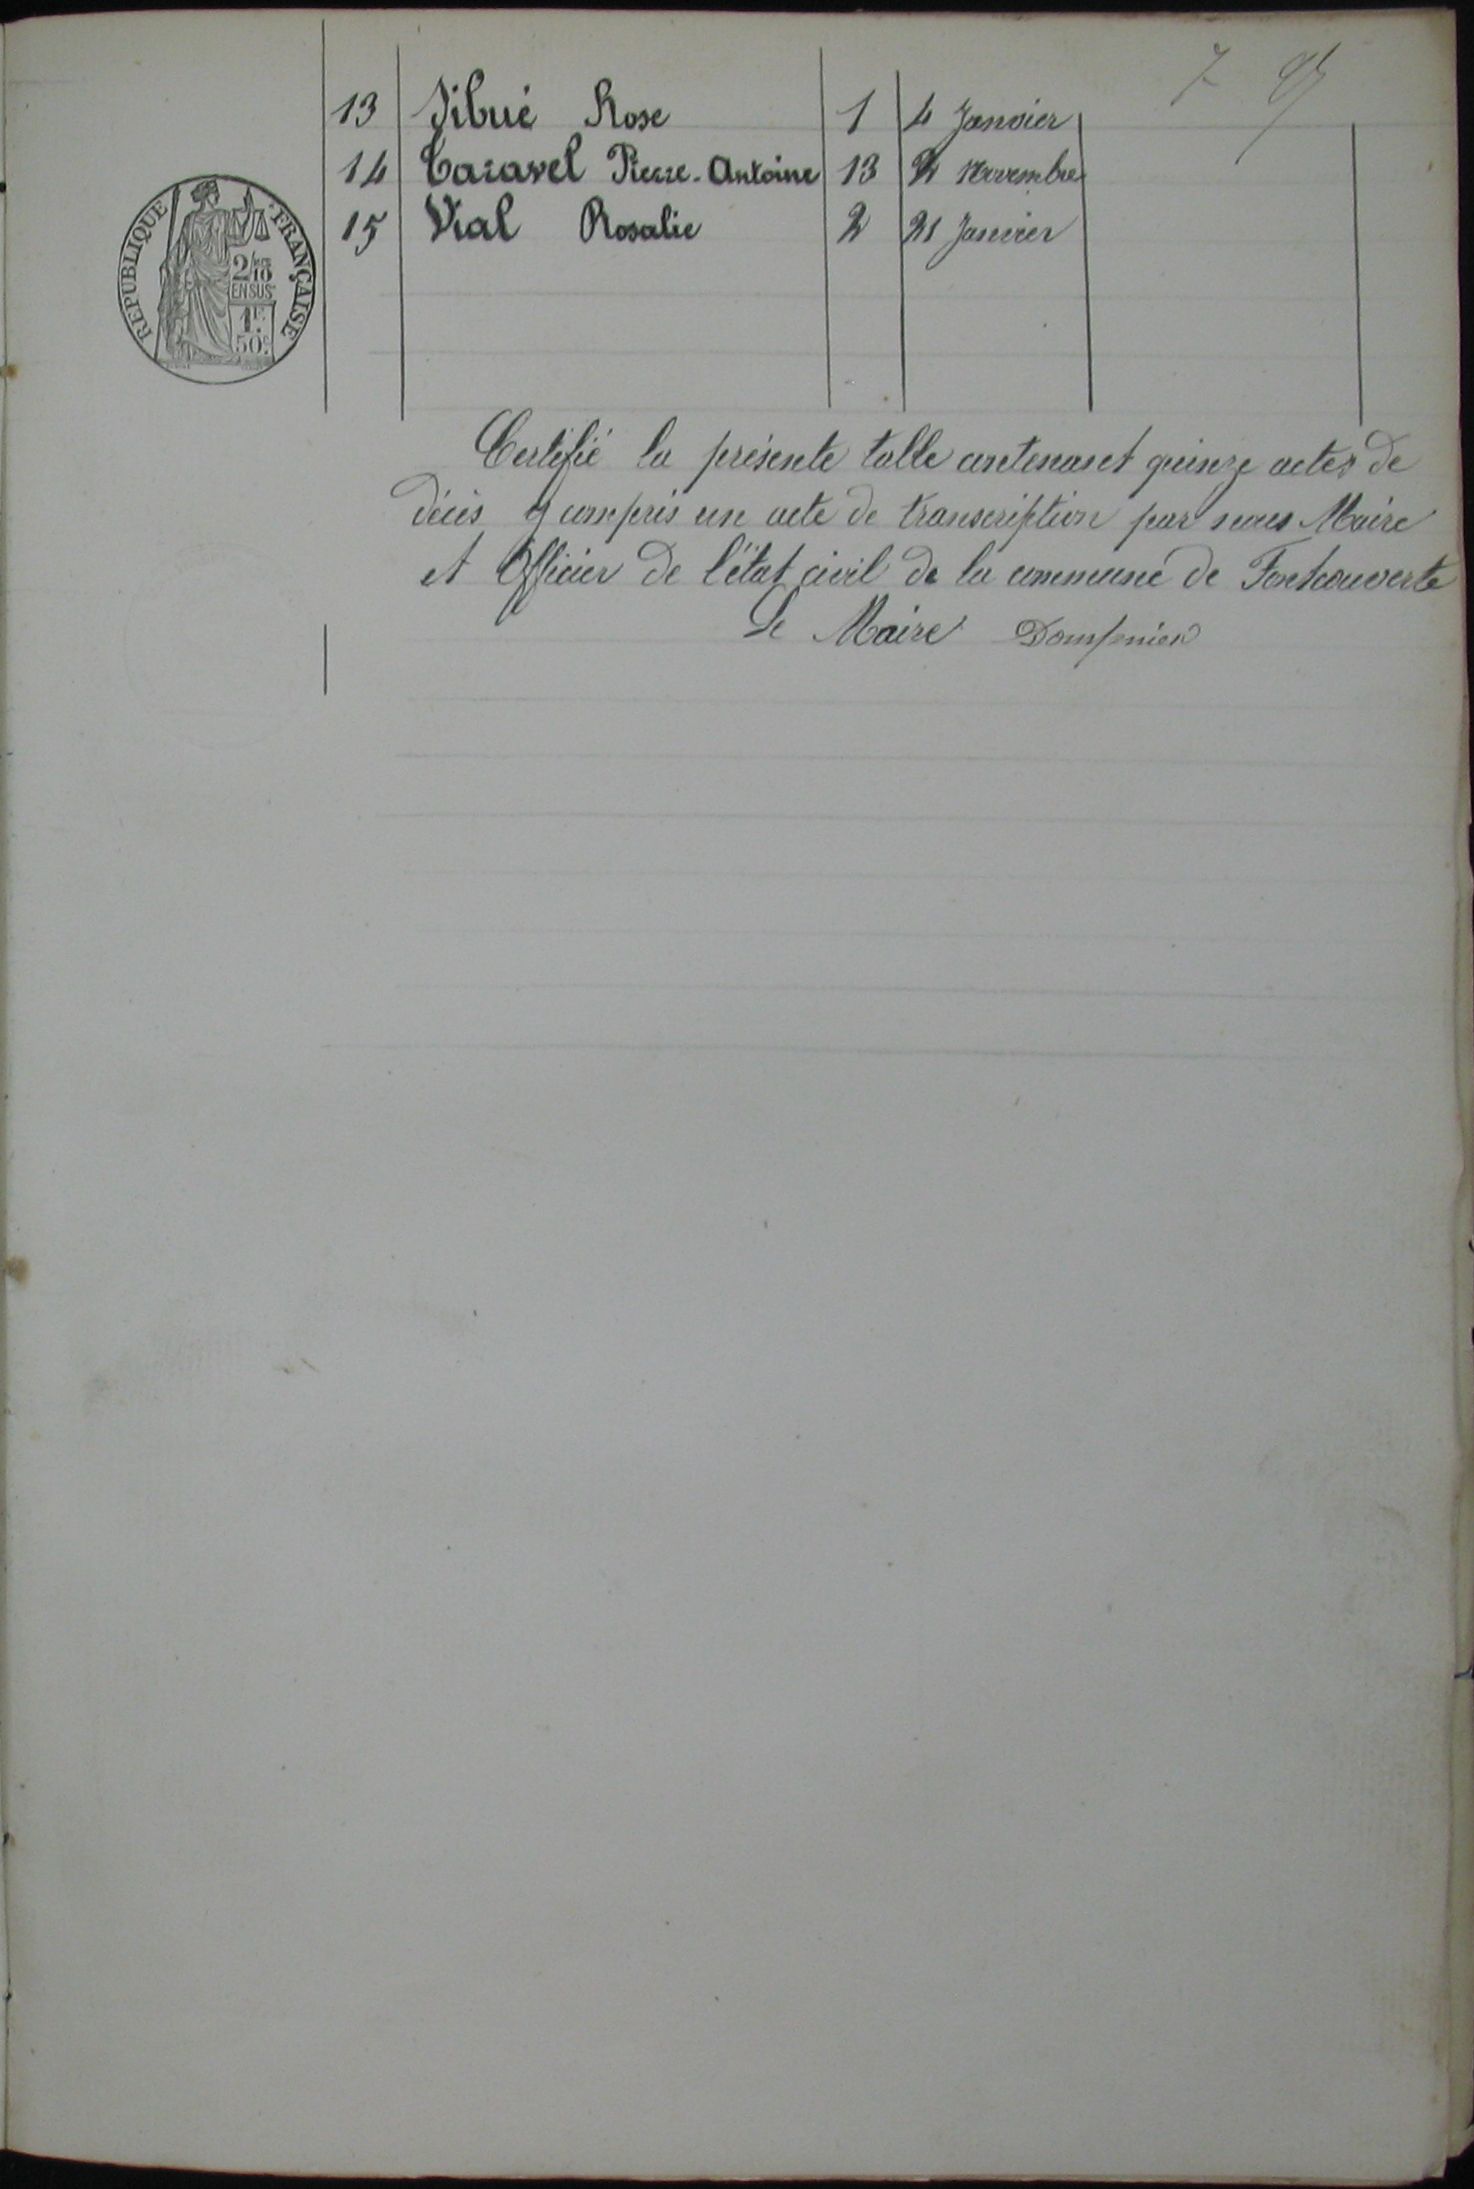 7
13 Sibué Rose 1 4 Janvier
14 Taravel Pierre-Antoine 13 2 Novembre
15 Vial Rosalie 2 21 Janvier
REPUBLIQUE FRANÇAISE
2/10
EN SUS
1F
50c
Certifié la présente table contenant quinze actes de
décès y compris un acte de transcription par nous Maire
et Officier de l'état civil de la commune de Fontcouverte
Le Maire Dompnier